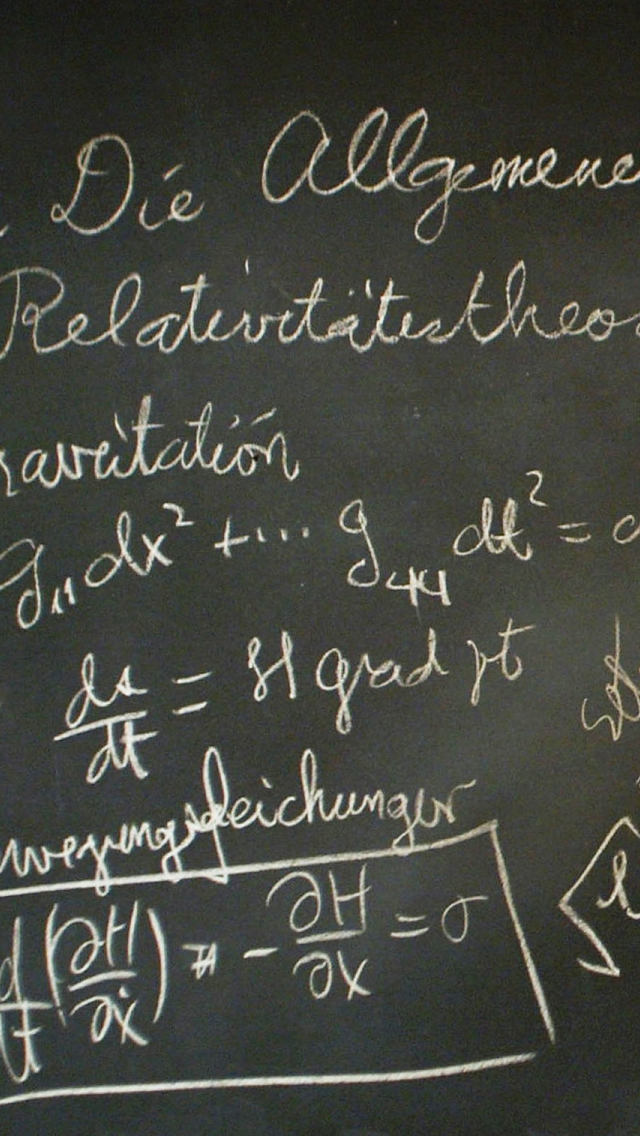 Die Allgemeine
Relativitätstheo
ravitation
g₁₁ dx² + ... g₄₄ dt² =
ds/dt = H grad
wegungsgleichungen
d/dt (∂H/∂ẋ) = - ∂H/∂x = 0